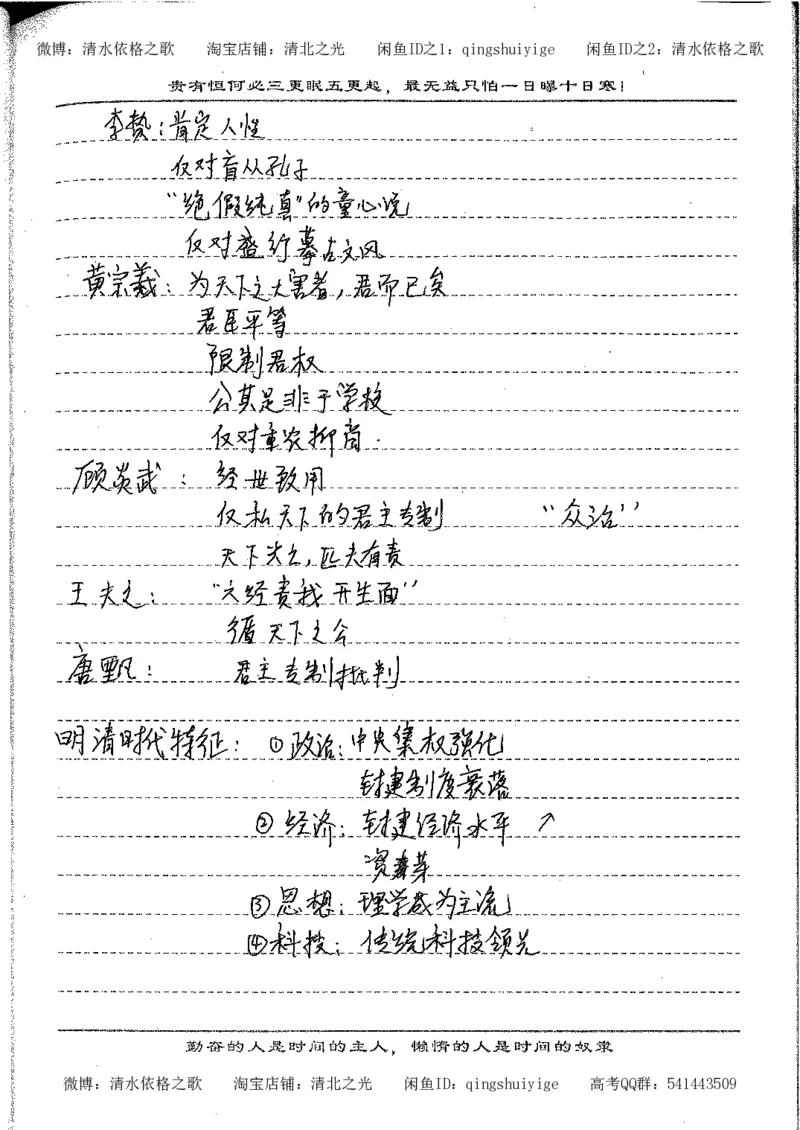 微博：清水依格之歌 淘宝店铺：清北之光 闲鱼ID之1：qingshuiyige 闲鱼ID之2：清水依格之歌
贵有恒何必三更眠五更起，最无益只怕一日曝十日寒！
李贽：肯定人性
仅对盲从孔子
“绝假纯真”的童心说
仅对盛行摹古文风
黄宗羲：为天下之大害者，君而已矣
君臣平等
限制君权
公其是非于学校
仅对重农抑商．
顾炎武：经世致用
仅私天下的君主专制 “众治”
天下兴亡，匹夫有责
王夫之：“六经责我开生面”
循天下之公
唐甄：君主专制批判
明清时代特征：①政治：中央集权强化
封建制度衰落
②经济：封建经济水平↗
资萌芽
③思想：理学成为主流
④科技：传统科技领先
勤奋的人是时间的主人，懒惰的人是时间的奴隶
微博：清水依格之歌 淘宝店铺：清北之光 闲鱼ID：qingshuiyige 高考QQ群：541443509